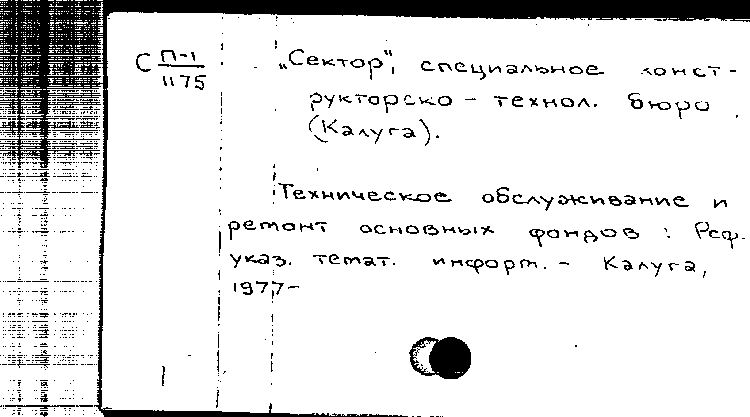 С П-1
1175
„Сектор", специальное конст-
рукторско - технол. бюро
(Калуга).
Техническое обслуживание и
ремонт основных фондов : Реф.
указ. темат. информ. - Калуга,
1977-